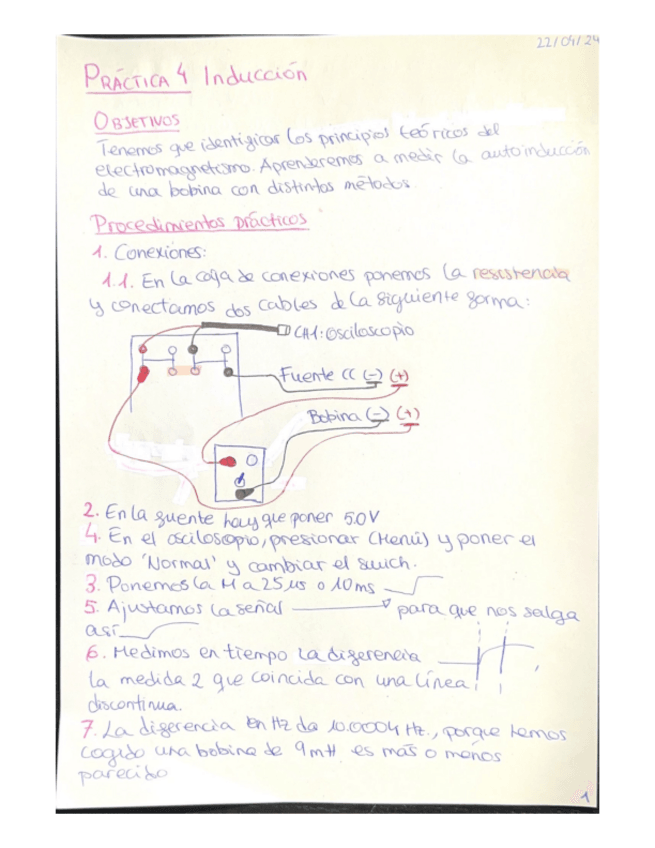 22/04/24
PRÁCTICA 4 Inducción
OBJETIVOS
Tenemos que identificar los principios teóricos del
electromagnetismo. Aprenderemos a medir la autoinducción
de una bobina con distintos métodos.
Procedimientos prácticos
1. Conexiones:
1.1. En la caja de conexiones ponemos la resistencia
y conectamos dos cables de la siguiente forma:
CH1: Osciloscopio
Fuente CC (-) (+)
Bobina (-) (+)
2. En la fuente hay que poner 5.0V
4. En el osciloscopio, presionar (Menú) y poner el
modo 'Normal' y cambiar el swich.
3. Ponemos la M a 25 µs o 10 ms
5. Ajustamos la señal para que nos salga
así
6. Medimos en tiempo la diferencia
la medida 2 que coincida con una línea
discontinua.
7. La diferencia en Hz da 10.0004 Hz., porque hemos
cogido una bobina de 9mH es más o menos
parecido
1